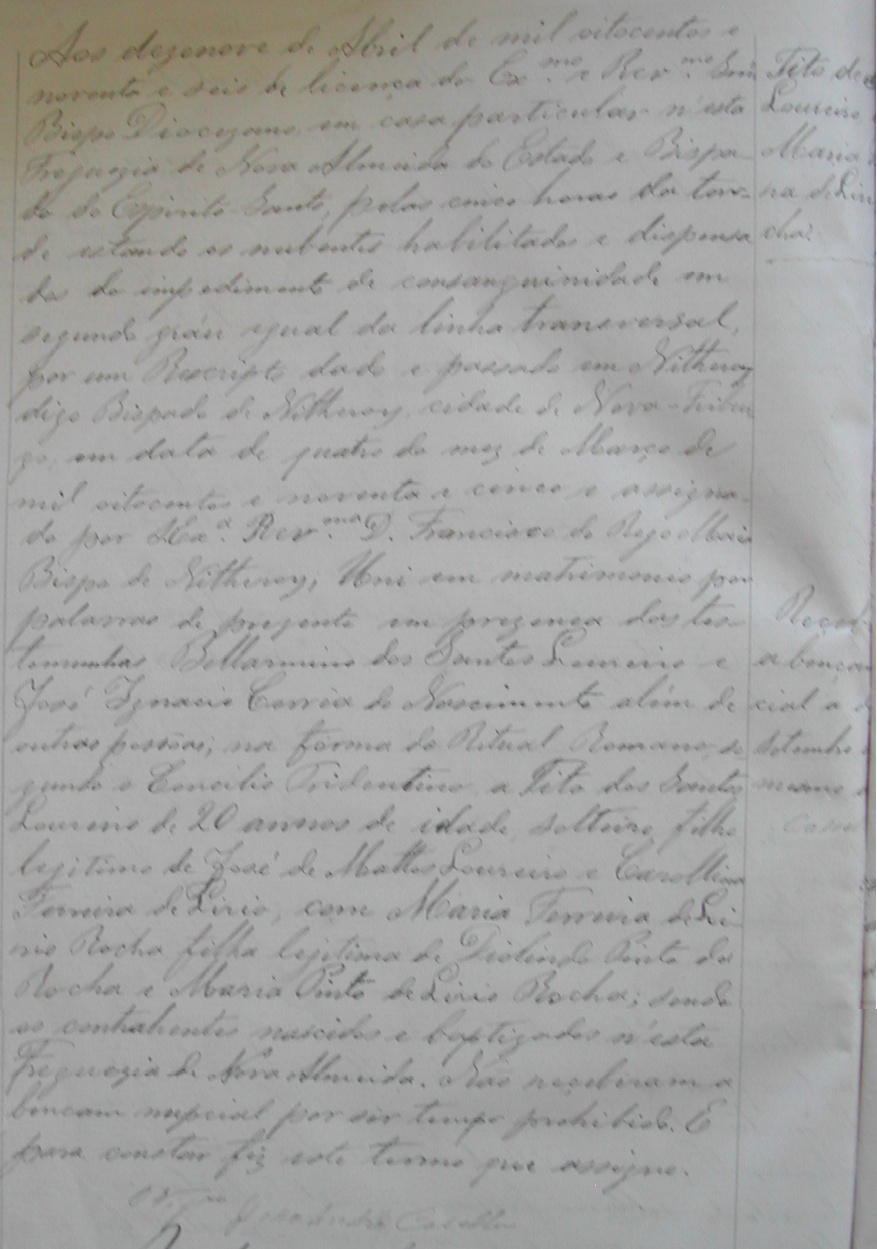 Aos dezenove de Abril de mil oitocentos e
noventa e seis de licença do Ex.mo e Rev.mo Snr
Bispo Diocezano, em casa particular n'esta
Freguezia de Nova Almeida do Estado e Bispa-
do do Espirito-Santo, pelas cinco horas da tar-
de estando os nubentes habilitados e dispensa
dos do impedimento de consanguinidade em
segundo gráu igual da linha transversal,
por um Rescripto dado e passado em Nitheroy
digo Bispado de Nitheroy, cidade de Nova-Fribur
go, em data de quatro do mez de Março de
mil oitocentos e noventa e cinco e assigna-
do por Rev.ma D. Francisco do Rego Maia
Bispo de Nitheroy; Uni em matrimonio por
palavras de prezente em prezença das tes-
temunhas Bellarmino dos Santos Loureiro e
José Ignacio Corrêa do Nascimento além de
outras pessôas; na fórma do Ritual Romano, se
gundo o Concilio Tridentino, a Tito dos Santos
Loureiro de 20 annos de idade, solteiro, filho
legitimo de José de Mattos Loureiro e Carollina
Ferreira de Lirio, com Maria Ferreira de Li-
rio Rocha filha legitima de Deolindo Pinto da
Rocha e Maria Pinto de Lirio Rocha; sendo
os contrahentes nascidos e baptizados n'esta
Freguezia de Nova Almeida. Não receberam a
bencam nupcial por ser tempo prohibido. E
para constar fiz este termo que assigno.
Tito do
Loureiro
Maria
na de Lir
cha.
Receb
a bençam
cial a
Setembro
mesmo